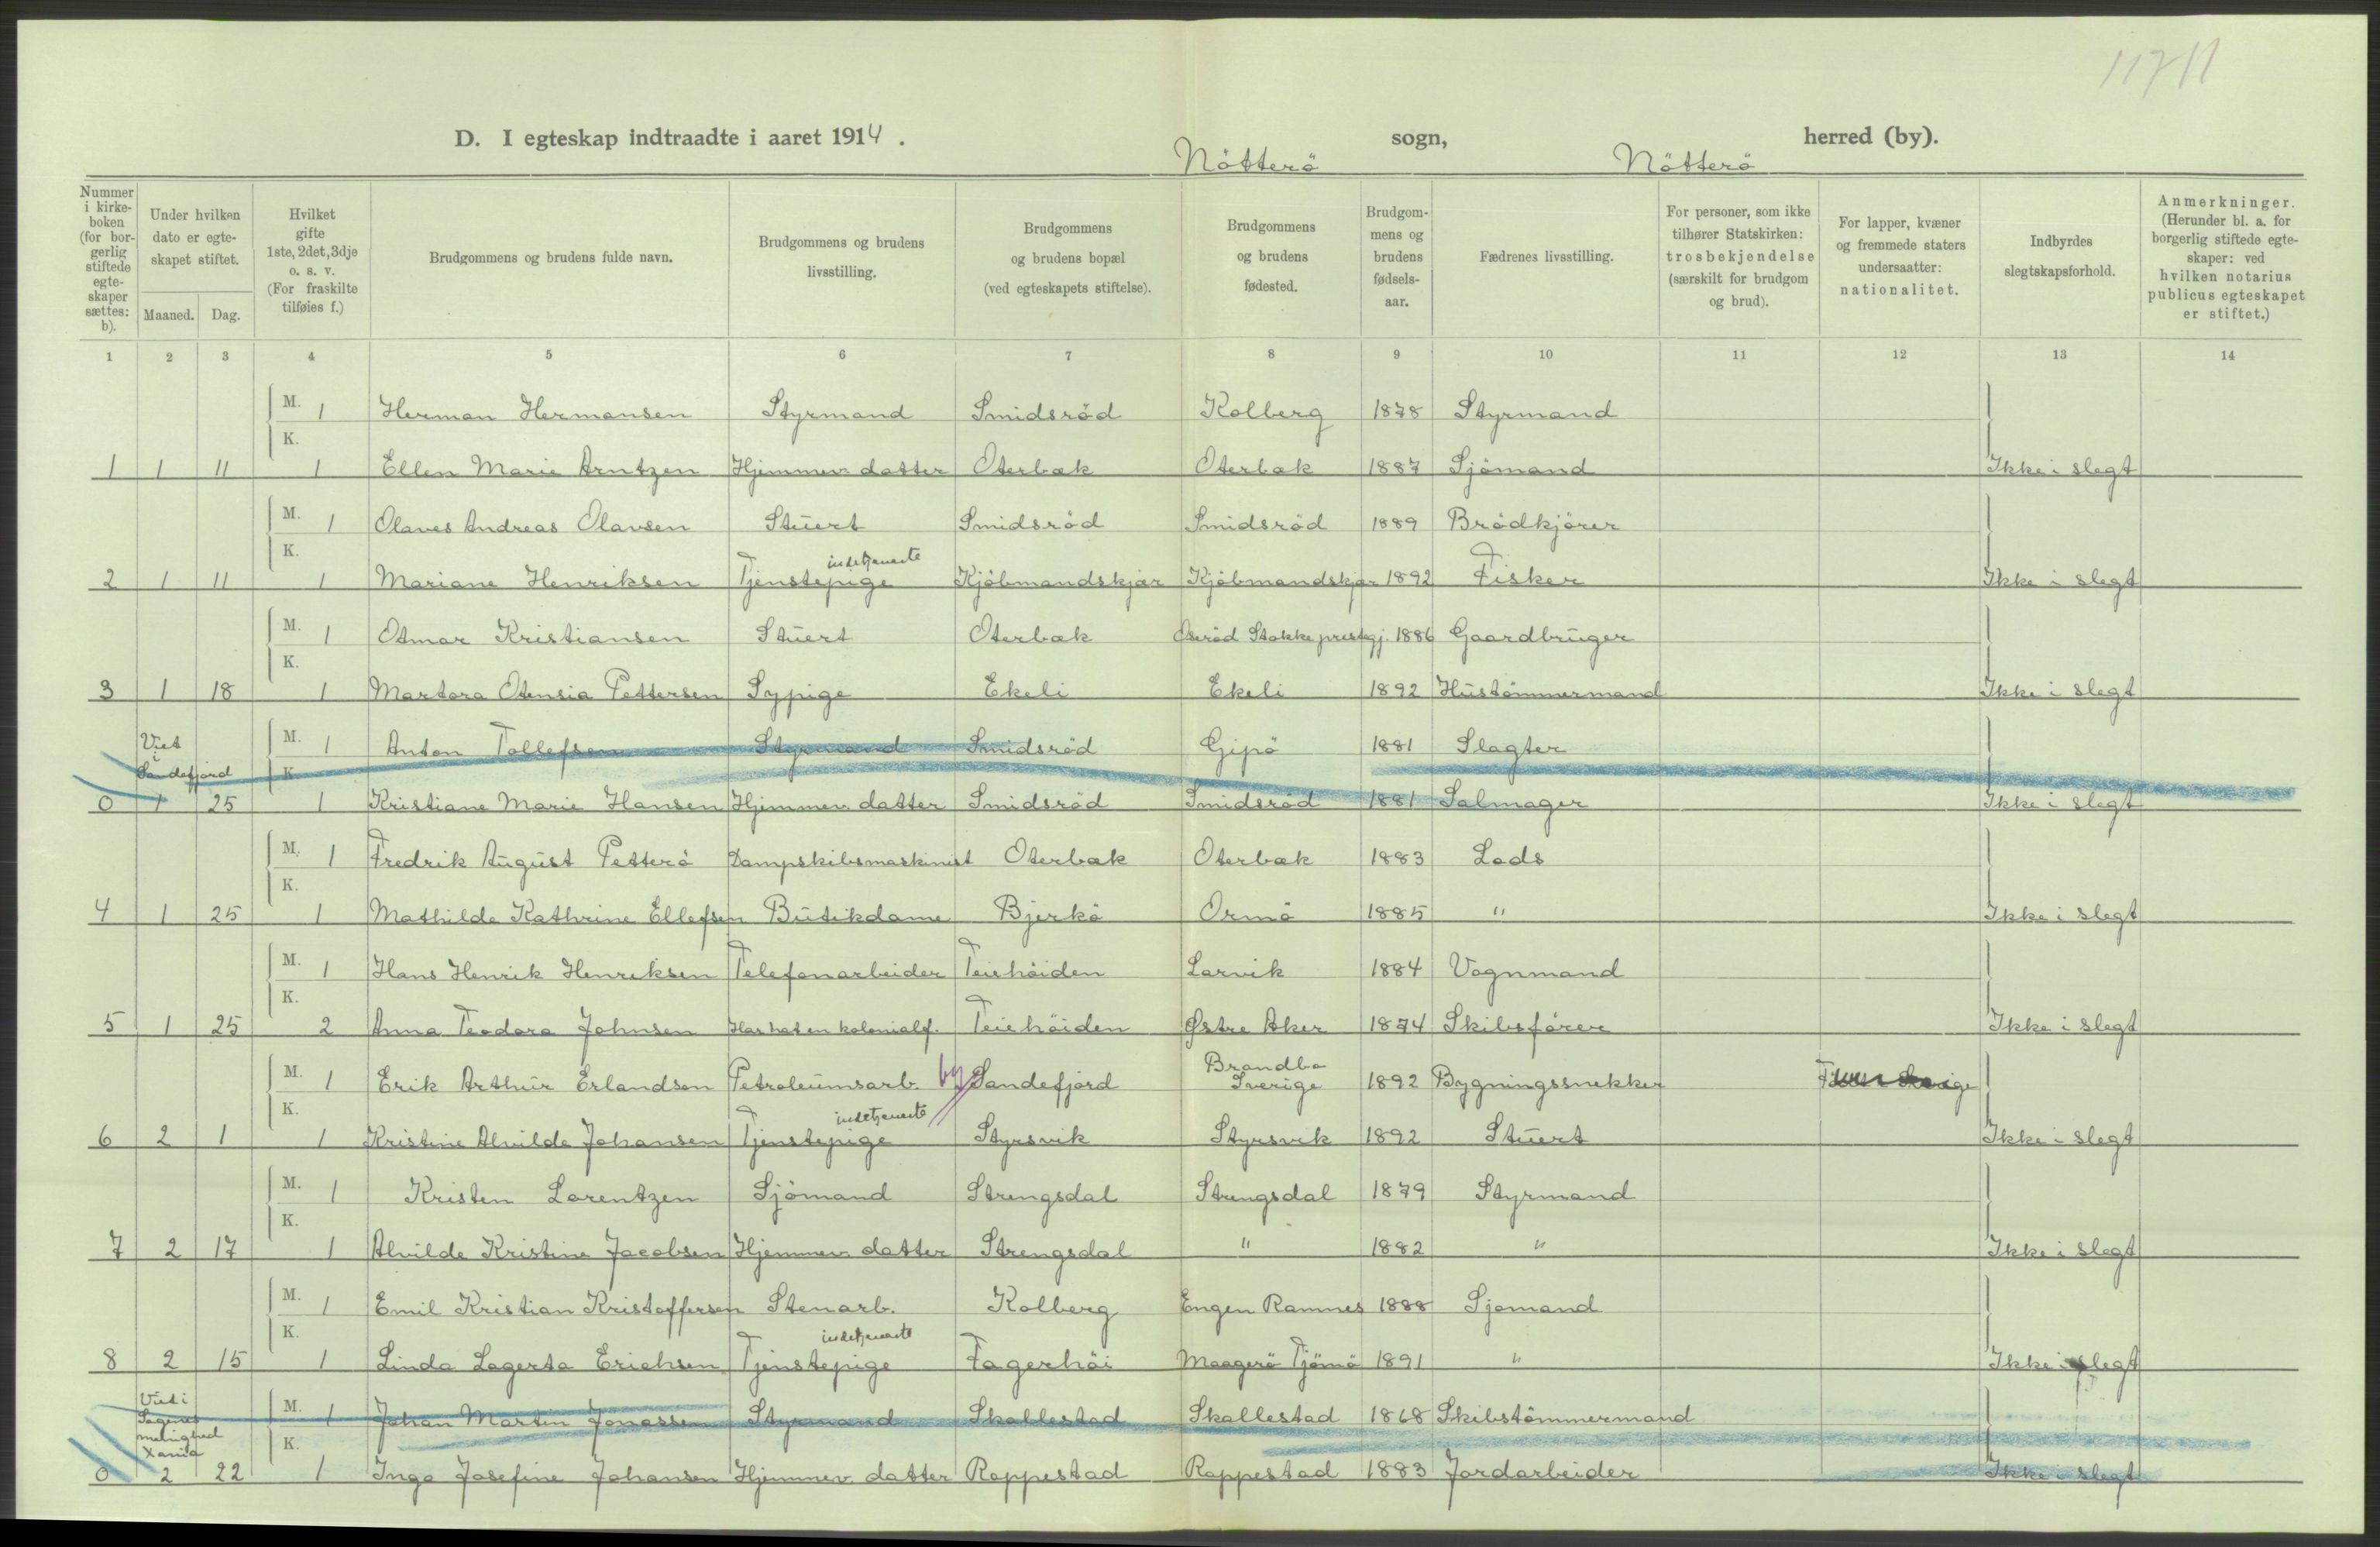 11711
D. I egteskap indtraadte i aaret 1914. Nötterö sogn, Nötterö herred (by).
Nummer i kirkeboken (for borgerlig stiftede egteskaper sættes: b). | Under hvilken dato er egteskapet stiftet. Maaned. Dag. | Hvilket gifte 1ste, 2det, 3dje o. s. v. (For fraskilte tilføies f.) | Brudgommens og brudens fulde navn. | Brudgommens og brudens livsstilling. | Brudgommens og brudens bopæl (ved egteskapets stiftelse). | Brudgommens og brudens fødested. | Brudgommens og brudens fødselsaar. | Fædrenes livsstilling. | For personer, som ikke tilhører Statskirken: trosbekjendelse (særskilt for brudgom og brud). | For lapper, kvæner og fremmede staters undersaatter: nationalitet. | Indbyrdes slegtskapsforhold. | Anmerkninger. (Herunder bl. a. for borgerlig stiftede egteskaper: ved hvilken notarius publicus egteskapet er stiftet.)
1 2 3 4 5 6 7 8 9 10 11 12 13 14
M. 1 Herman Hermansen Styrmand Smidsröd Kolberg 1878 Styrmand
K.
1 1 11 1 Ellen Marie Arntzen Hjemmev. datter Oterbæk Oterbæk 1887 Sjömand Ikke i slegt
M. 1 Olaves Andreas Olavsen Stuert Smidsröd Smidsröd 1889 Brödkjörer
K. indetjeneste
2 1 11 1 Mariane Henriksen Tjenstepige Kjöbmandskjær Kjöbmandskjær 1892 Fisker Ikke i slegt
M. 1 Otmar Kristiansen Stuert Oterbæk Oseröd Stokke prestegj. 1886 Gaardbruger
K.
3 1 18 1 Martora Otensia Pettersen Sypige Ekeli Ekeli 1892 Hustömmermand Ikke i slegt
Viet i Sandefjord
M. 1 Anton Tollefsen Styrmand Smidsröd Gipö 1881 Slagter
K.
0 1 25 1 Kristiane Marie Hansen Hjemmev. datter Smidsröd Smidsröd 1881 Salmager Ikke i slegt
M. 1 Fredrik August Petterö Dampskibsmaskinist Oterbæk Oterbæk 1883 Lods
K.
4 1 25 1 Mathilde Kathrine Ellefsen Butikdame Bjerkö Ormö 1885 " Ikke i slegt
M. 1 Hans Henrik Henriksen Telefonarbeider Teiehöiden Larvik 1884 Vognmand
K.
5 1 25 2 Anna Teodora Johnsen Har hat en kolonialf. Teiehöiden Østre Aker 1874 Skibsförer Ikke i slegt
M. 1 Erik Arthur Erlandson Petroleumsarb. by Sandefjord Brandbo Sverige 1892 Bygningssnekker
K. indetjeneste
6 2 1 1 Kristine Alvilde Johansen Tjenstepige Styrsvik Styrsvik 1892 Stuert Ikke i slegt
M. 1 Kristen Lorentzen Sjömand Strengsdal Strengsdal 1879 Styrmand
K.
7 2 17 1 Alvilde Kristine Jacobsen Hjemmev. datter Strengsdal " 1882 " Ikke i slegt
M. 1 Emil Kristian Kristoffersen Stenarb. Kolberg Engen Ramnes 1888 Sjomand
K. indetjeneste
8 2 15 1 Linda Lagerta Erichsen Tjenstepige Fagerhöi Maagerö Tjömö 1891 " Ikke i slegt
Viet i Sagenes menighed Xania
M. 1 Johan Martin Jonassen Styrmand Skallestad Skallestad 1868 Skibstömmermand
K.
0 2 22 1 Inga Josefine Johansen Hjemmev. datter Rappestad Rappestad 1883 Jordarbeider Ikke i slegt